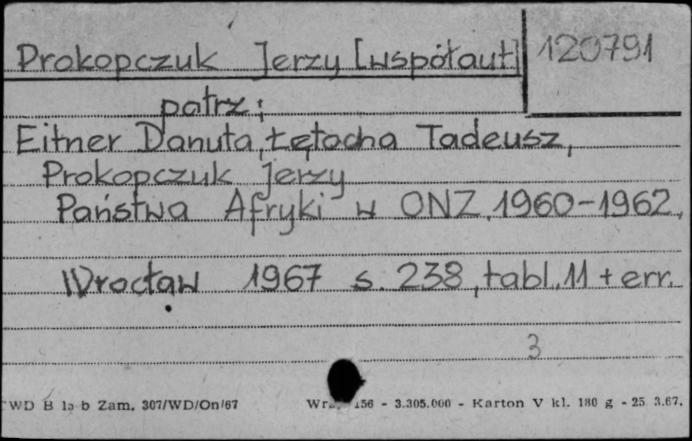 Prokopczuk Jerzy [współaut.] 120791
patrz:
Eitner Danuta, Łętocha Tadeusz,
Prokopczuk Jerzy
Państwa Afryki w ONZ, 1960-1962,
Wrocław 1967 s. 238, tabl. 11 + err.
3
WD B 1a b Zam. 307/WD/On/67 156 - 3.305.000 - Karton V kl. 180 g - 25.3.67.